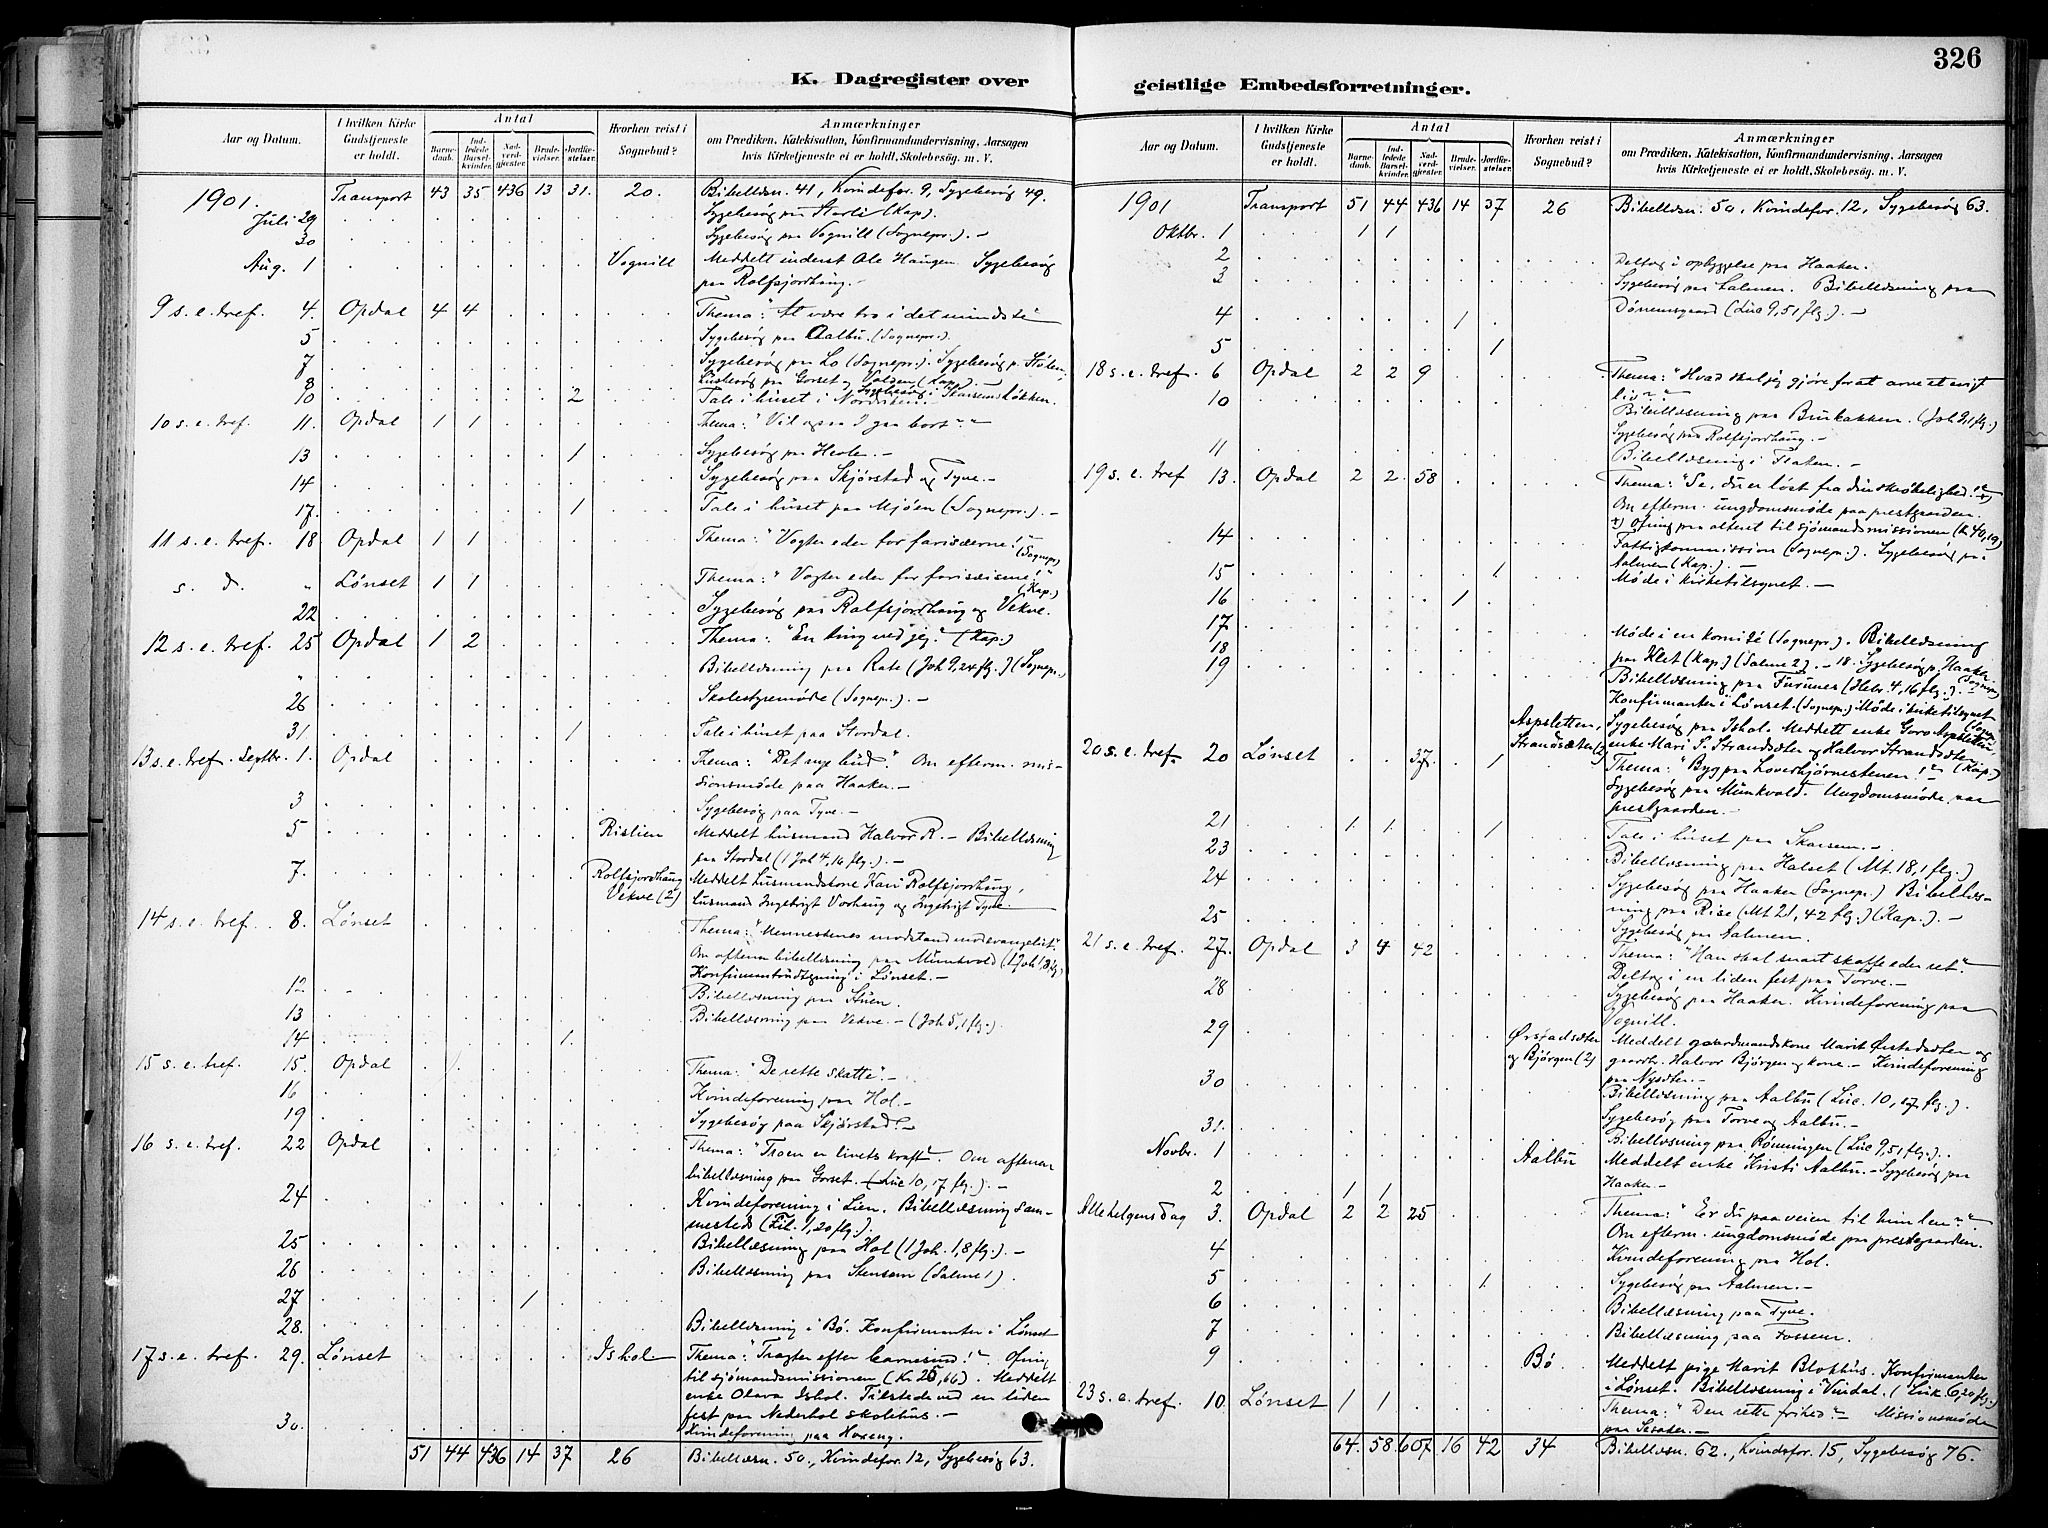 326
K. Dagregister over
Aar og Datum.
I hvilken Kirke Gudstjeneste er holdt.
Antal
Barnedaab. Indledede Barselkvinder. Nadverdgjester. Brudevielser. Jordfæstelser.
Hvorhen reist i Sognebud?
Anmærkninger
om Prædiken, Katekisation, Konfirmandundervisning, Aarsagen
hvis Kirketjeneste ei er holdt, Skolebesøg. m. V.
1901. Transport 43 35 436 13 31. 20. Bibellæsn. 41, Kvindefor. 9, Sygebesøg 49.
Juli 29 Sygebesøg paa Storli (Kap).
30 Sygebesøg paa Vognill (Sognepr.). -
Aug. 1 Vognill Meddelt inderst Ole Haugen. Sygebesøg
paa Rolfsjordhaug. -
9 s. e. tref. 4. Opdal 4 4 Thema: "At være tro i det mindste"
5 Sygebesøg paa Aalbu. (Sognepr.).
7 Sygebesøg paa Lo (Sognepr.). Sygebesøg p. Stølen,
8 Husbesøg paa Gorset og (Kap). -
10 2 Tale i huset i Skarsemsløkken.
10 s. e. tref. 11. Opdal 1 1 Thema: "Vil ogsaa I gaa bort?"
13 1 Sygebesøg paa Hevle. -
14 Sygebesøg paa Skjørstad og Tyve. -
17. 1 Tale i huset paa Mjøen (Sognepr.). -
11 s. e. tref. 18 Opdal 1 1 Thema: "Vogter eder for farisæerne!" (Sognepr)
s. d. " Lønset 1 1 Thema: "Vogter eder for farisæerne!" (Kap.)
22 Sygebesøg paa Rolfsjordhaug og Vekve.
12 s. e. tref. 25 Opdal 1 2 Thema: "En ting ved jeg." (Kap.)
" Bibellæsning paa Rate (Joh 9,24 flg.) (Sognepr.)
26 Skolestyremøde (Sognepr.). -
31. 1 Tale i huset paa Stordal.
13 s. e. tref. Septbr. 1. Opdal Thema: "Det nye bud." Om efterm. mis-
sionsmøde paa Haaker. -
3 Sygebesøg paa Tyve. -
5 Rislien Meddelt husmand Halvor R. - Bibellæsning
paa Stordal (1 Joh 4,16 flg.). -
7. Rolfsjordhaug Meddelt husmandskone Kari Rolfsjordhaug,
Vekve (2) husmand Ingebrigt Vorhaug og Ingebrigt Tyve.
14 s. e. tref. 8. Lønset Thema: "Menneskenes modstand mod evangeliet".
Om aftenen bibellæsning paa Munkvold (1 Joh 1,8 flg)
Konfirmantudtegning i Lønset. -
12. Bibellæsning paa Stuen.
13 Bibellæsning paa Vekve. - (Joh 5,1 flg.).
14 1.
15 s. e. tref. 15. Opdal 1 Thema: "De rette skatte". -
16 Kvindeforening paa Hol. -
19 Sygebesøg paa Skjørstad. -
16 s. e. tref. 22 Opdal Thema: "Troen er livets kraft". Om aftenen
bibellæsning paa Gorset. - (Luc 10,17 flg.). -
24 Kvindeforening i Lien. Bibellæsning sam-
mesteds (Fil. 1,20 flg.).
25 Bibellæsning paa Hol (1 Joh. 1,8 flg.). -
26 Bibellæsning paa Stensem (Salme 1).
27 1
28. Bibellæsning i Bø. Konfirmanter i Lønset
17 s. e. tref. 29. Lønset Ishol Thema: "Tragter efter barnesind!" Ofring
til sjømandsmissionen (Kr. 25,66). Meddelt
enke Olava Ishol. Tilstede ved en liden
fest paa Nederhol skolehus. -
30. Kvindeforening paa Hoxeng.
51 44 436 14 37 26 Bibellæsn. 50., Kvindefor. 12, Sygebesøg 63.
geistlige Embedsforretninger.
Aar og Datum.
I hvilken Kirke Gudstjeneste er holdt.
Antal
Barnedaab. Indledede Barselkvinder. Nadverdgjester. Brudevielser. Jordfæstelser.
Hvorhen reist i Sognebud?
Anmærkninger
om Prædiken, Katekisation, Konfirmandundervisning, Aarsagen
hvis Kirketjeneste ei er holdt, Skolebesøg. m. V.
1901 Transport 51 44 436 14 37 26 Bibellæsn. 50, Kvindefor. 12, Sygebesøg 63.
Oktbr. 1 1 1
2 Deltog i opbyggelse paa Haaker.
3 Sygebesøg paa Aalmen. Bibellæsning paa
Dørremsgaard (Luc 9,51 flg.). -
4 1
5 1
18 s. e. tref. 6 Opdal 2 2 9 Thema: "Hvad skal jeg gjøre for at arve et evigt
liv?"
10 Bibellæsning paa Brukakken. (Joh 3,1 flg.)
Sygebesøg paa Rolfsjordhaug. -
11 Bibellæsning i Flaten. -
19 s. e. tref 13. Opdal 2 2. 58 Thema: "Se, du er løst fra din skrøbelighed!"
Om efterm. ungdomsmøde paa prestgaarden.
Ofring paa alteret til sjømandsmissionen (Kr 40,19)
14 Fattigkommission (Sognepr.). Sygebesøg paa
Aalmen (Kap.). -
15 1. Møde i kirketilsynet. -
16 1
17.
18 Møde i en komité (Sognepr.). Bibellæsning
paa Klet (Kap.) (Salme 2). - 18. Sygebesøg p. Haaker. (Sognepr)
19 Bibellæsning paa Furunes (Hebr. 4,16 flg.).
Konfirmanter i Lønset. (Sognepr.) Møde i kirketilsynet
Aspsletten, Sygebesøg paa Ishol. Meddelt enke Goro Aspsletten,
Strandsæter (2) enke Mari S. Strandsæter og Halvor Strandsæter.
20 s. e. tref. 20 Lønset 37. 1 Thema: "Byg paa hovedhjørnestenen!" - (Kap.)
Sygebesøg paa Munkvold. Ungdomsmøde paa
prestgaarden. -
21 1. 1. 1
23 Tale i huset paa Skarsem. -
24 Bibellæsning paa Halset (Mt. 18,1 flg.)
Sygebesøg paa Haaker (Sognepr.) Bibellæs-
25 ning paa Rise (Mt 21, 42 flg.) (Kap.). -
Sygebesøg paa Aalmen.
21 s. e. tref. 27. Opdal 3 4 42 Thema: "Han skal snart skaffe eder ret."
Deltog i en liden fest paa Torve. -
28 Sygebesøg paa Haaker. Kvindeforening paa
Vognill.
29 Ørstadsæter Meddelt gaardmandskone Marit Ørstadsæter og
og Bjørgen (2) gaardbr. Halvor Bjørgen og kone. - Kvindeforening
30 paa Nysæter. -
Bibellæsning paa Aalbu (Luc. 10, 17 flg.).
31. Sygebesøg paa Torve og Aalbu. -
Bibellæsning paa Rønningen (Luc 9,51 flg.).
Novbr. 1 Aalbu Meddelt enke Kristi Aalbu. - Sygebesøg paa
2 1 1 Haaker. -
Allehelgensdag 3. Opdal 2 2 25 Thema: "Er du paa veien til himlen?"
Om efterm. ungdomsmøde paa prestgaarden.
4 Kvindeforening paa Hol.
5 1 Sygebesøg paa Aalmen. -
6 Bibellæsning paa Tyve.
7 Bibellæsning paa Fossem.
9 Bø Meddelt pige Marit Blokhus. Konfirmanter
i Lønset. Bibellæsning i Vindal. (Luk. 6,20 flg.)
23 s. e. tref. 10. Lønset 1 1 Thema: "Den rette frihed". - Missionsmøde
paa Sæteren. -
64. 58 607 16 42 34 Bibellæsn. 62., Kvindefor. 15, Sygebesøg 76.